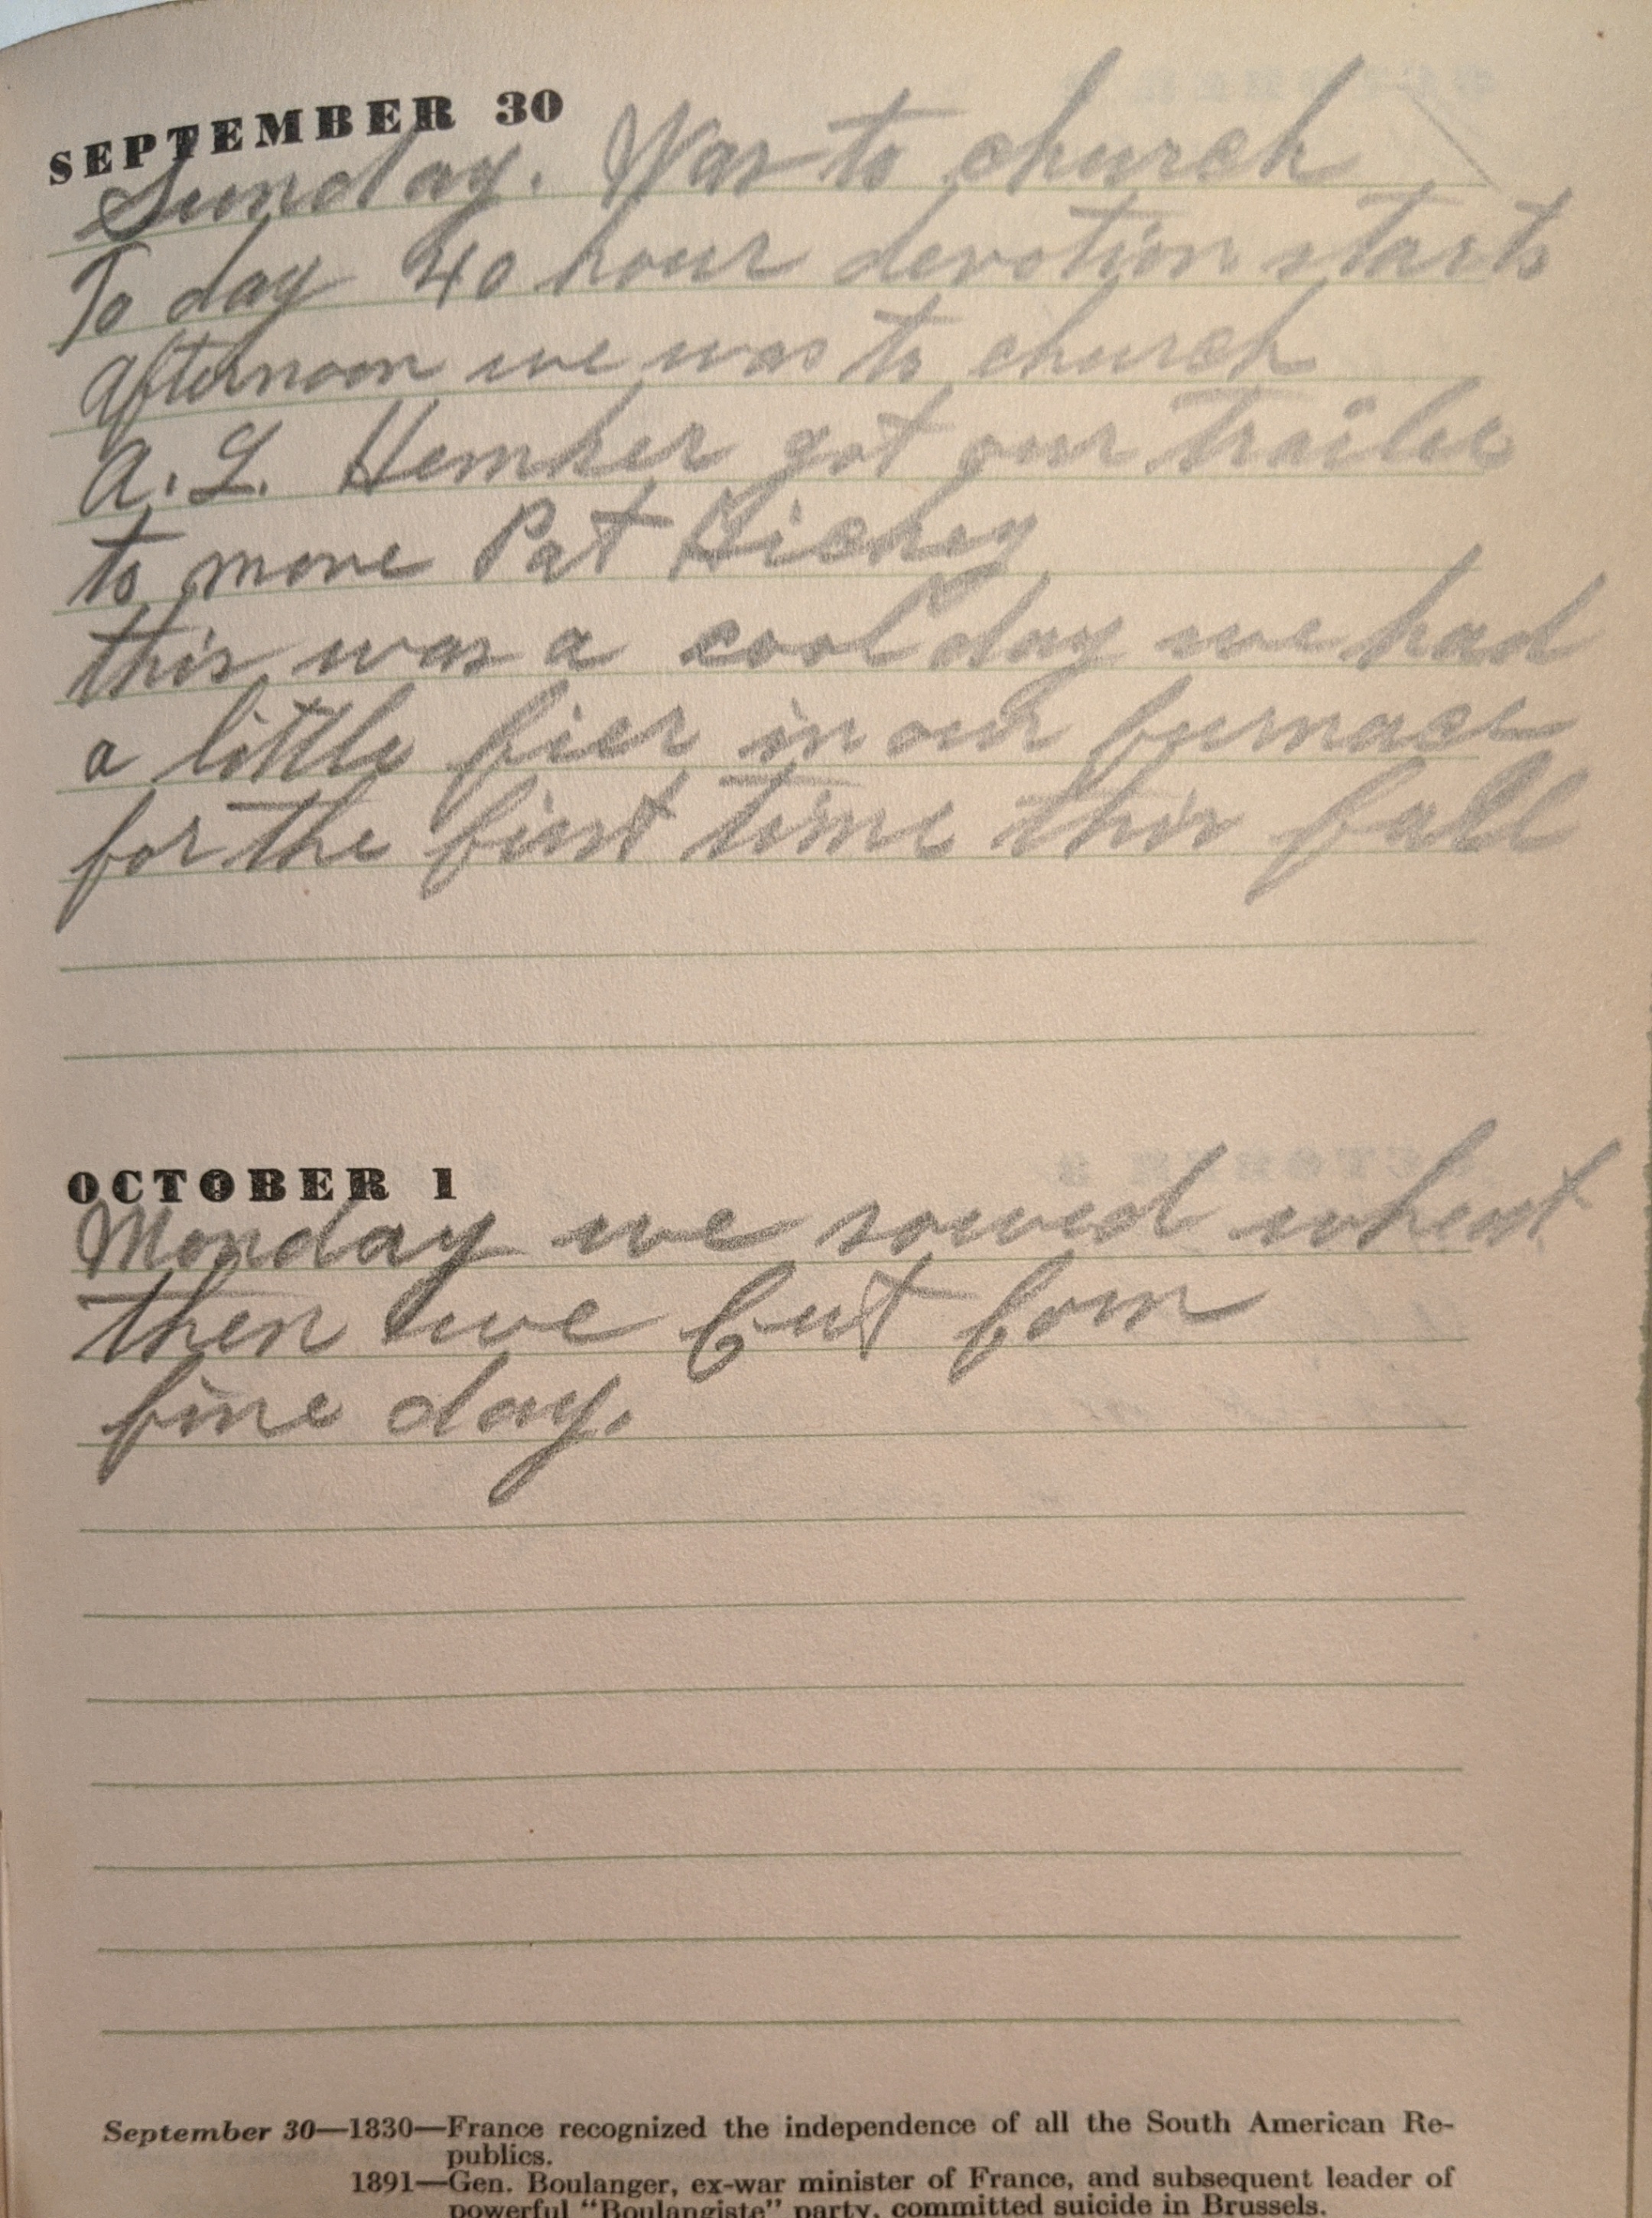 SEPTEMBER 30
Sunday. Was to church
To day 40 hour devotion starts
afternoon we was to church
A. L. Hemker got our trailer
to move Pat Hickey
this was a cool day we had
a little fier in our furnace
for the first time this fall
OCTOBER 1
Monday we sowed wheat
then we cut
fine day.
September 30—1830—France recognized the independence of all the South American Re-
publics.
1891—Gen. Boulanger, ex-war minister of France, and subsequent leader of
powerful "Boulangiste" party, committed suicide in Brussels.